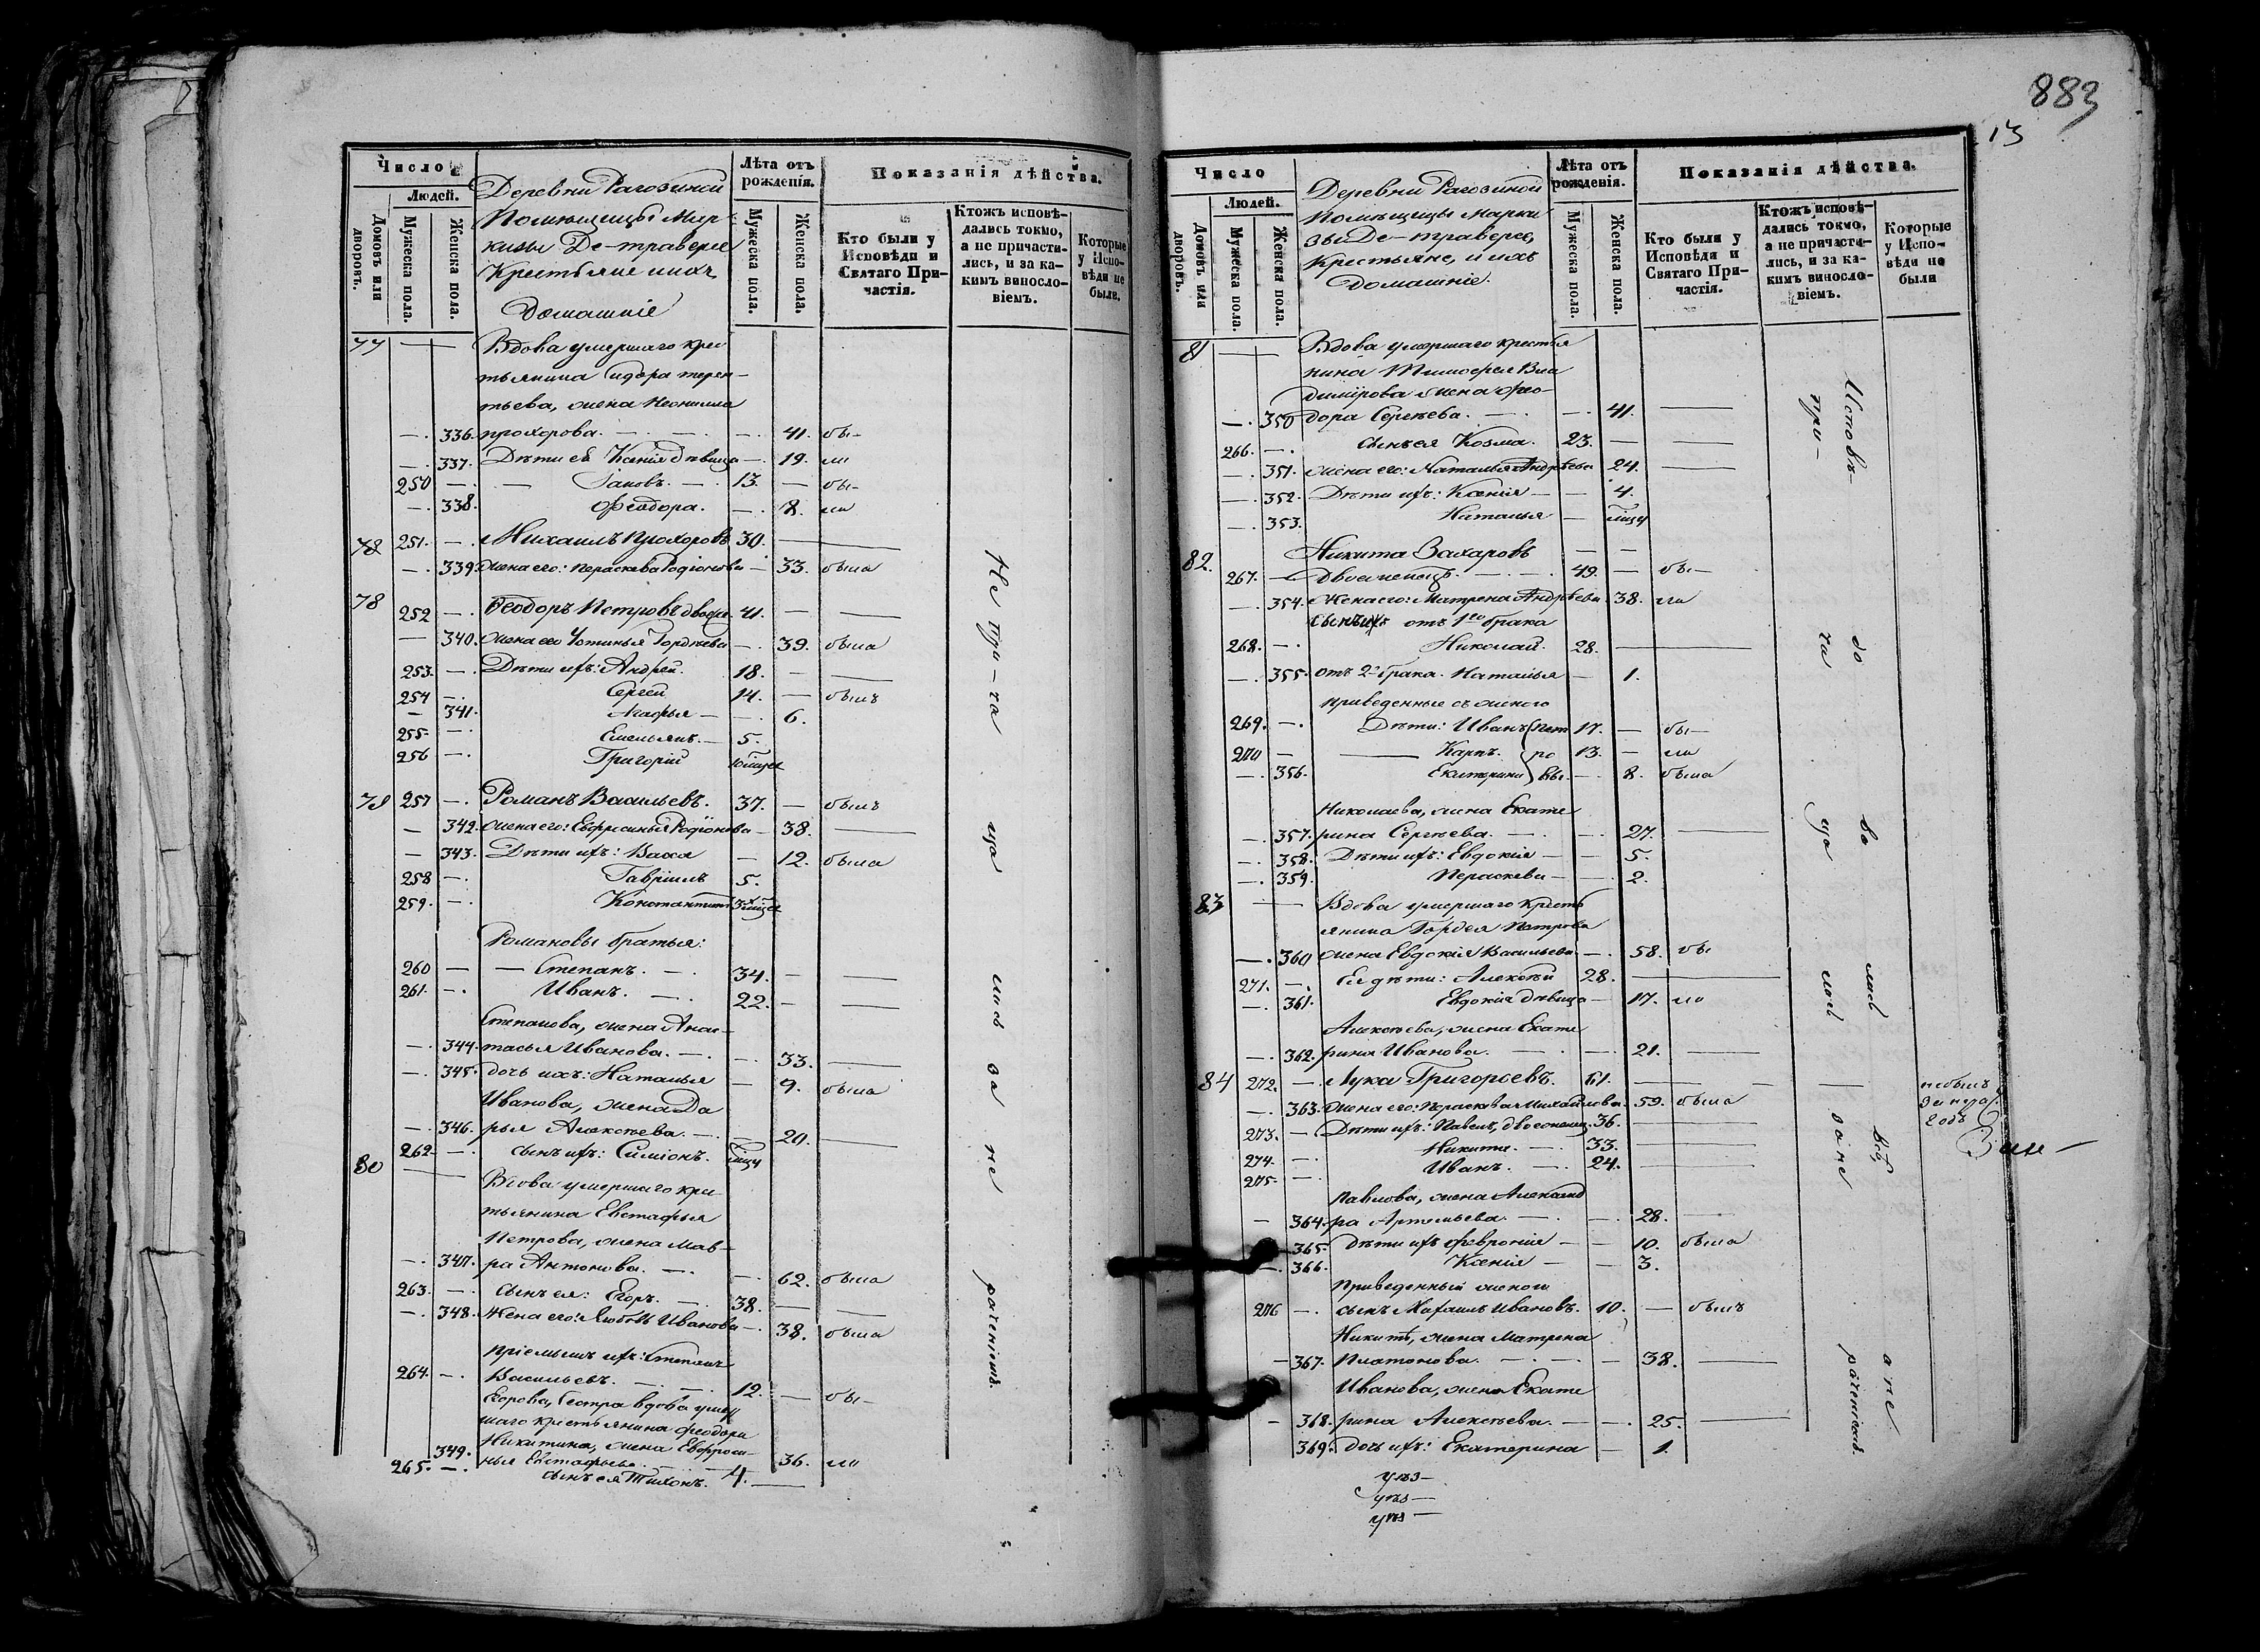 883
13
Число
Людей.
Домовъ или дворовъ.
Мужеска пола.
Женска пола.
Деревни Рагозиной
Помѣщицы Мар-
кизы Де-траверсе
Крестьяне и ихъ
домашніе
Лѣта отъ рожденія.
Мужеска пола.
Женска пола.
Показанія дѣйства.
Кто были у Исповѣди и Святаго При-частія.
Ктожъ исповѣ-дались токмо, а не причасти-лись, и за ка-кимъ винос­ло-віемъ.
Которые у Испо-вѣди не были.
77 — Вдова умершаго крес
тьянина Сидора терен-
тьева, жена Неонилла
— 336. прохорова. — 41. бы-
— 337. Дѣти её Ксенія дѣвица — 19. ли
250 — Іаковъ. 13. — бы-
— 338. Феодора. — 8. ли
78 251. — Михаилъ Прохоровъ 30. —
— 339 жена его: Параскева Родіонова — 33. была
78 252 — Феодоръ Петровъ двоеж. 41. —
— 340. жена его Устинья Гордѣева — 39. была
253. — Дѣти ихъ: Андрей. 18. —
254 — Сергей 14. — былъ
— 341. Агафья — 6.
255 — Емельянъ. 5.
256 — Григорій
79 257 — Романъ Васильевъ. 37. — былъ
— 342. жена его: Евфросинья Родіонова — 38. —
— 343. Дѣти ихъ: Васса — 12. была
258 — Гавріилъ 5.
259. — Константинъ
Романовы братья:
260 — Степанъ. 34. —
261. — Иванъ. 22. —
Степанова, жена Анас-
— 344. тасья Иванова. — 33. —
— 345. дочь ихъ: Наталья — 9. была
Иванова, жена Да
— 346. рья Алексѣева. — 20. —
262. — сынъ ихъ: Симіонъ.
80 — Вдова умершаго кре
тьянина Евстафья
Петрова, жена Мав-
— 347. ра Антонова. — 62. была
263. — Сынъ ея: Егоръ. 38. —
— 348. Жена его: Любовь Иванова — 38. была
пріемышъ ихъ: Степанъ
264. — Васильевъ. 12. — бы-
Егорова, Сестра вдова умер
шаго крестьянина Феодора
Никитина, жена Евфроси-
349. нья Евстафьева. — 36. ли
265. — сынъ ея Тихонъ. 4. —
Не при-ча ща лись за не раченіемъ.
Число
Людей.
Домовъ или дворовъ.
Мужеска пола.
Женска пола.
Деревни Рагозиной
Помѣщицы Марки
зы Де-траверсе,
Крестьяне, и ихъ
домашніе.
Лѣта отъ рожденія.
Мужеска пола.
Женска пола.
Показанія дѣйства.
Кто были у Исповѣди и Святаго При-частія.
Ктожъ исповѣ-дались токмо, а не причасти-лись, и за ка-кимъ винос­ло-віемъ.
Которые у Испо-вѣди не были
81 — Вдова умершаго крестья
нина Тимофея Вла
димірова жена Фео-
— 350 дора Сергѣева. — 41. —
266. — Сынъ ея Козма. 23. —
— 351. жена его: Наталья Андрѣева 24. —
— 352. Дѣти ихъ: Ксенія — 4.
— 353. Наталья —
82. Никита Захаровъ — —
267. — двоеженецъ. 49. — бы-
— 354. Жена его: Матрена Андрѣева 38. ла
Сынъ ихъ отъ 1го брака
268. — Николай. 28. —
— 355. отъ 2 брака. Наталья — 1.
приведенные съ женою
269. — Дѣти: Иванъ Пет 17. — бы-
270 — Карпъ. ро 13. — ли
— 356. Екатерина вы. — 8. была
Николаева, жена Екате
— 357. рина Сергѣева. — 27. —
— 358. Дѣти ихъ: Евдокія — 5.
— 359. Параскева — 2.
83 — Вдова умершаго кресть
янина Гордея Петрова
— 360 жена Евдокія Васильева — 58. бы
271. — Ея дѣти: Алексѣй 28. —
— 361. Евдокія дѣвица — 17. ла
Алексѣева, жена Екате
— 362. рина Иванова. — 21. —
84 272. — Лука Григорьевъ. 61. — не былъ
— 363. жена его: Параскева Михайлова. 59. была
273. — Дѣти ихъ: Павелъ, двоеженец. 36. —
274. — Никита. 33.
275. — Иванъ. 24. —
Павлова, жена Александ
— 364. ра Артемьева. — 28. —
365. дѣти ихъ Февронія — 10. была
— 366. Ксенія — 3.
Приведенный женою
276 — сынъ Михаилъ Ивановъ. 10. — былъ
Никиты, жена Матрена
— 367. Платонова. — 38. —
Иванова, жена Екате
— 368. рина Алексѣева. — 25. —
369. дочь ихъ: Екатерина — 1.
Исповѣ-до ва лись а не
при-ча ща лись за не раченіемъ.